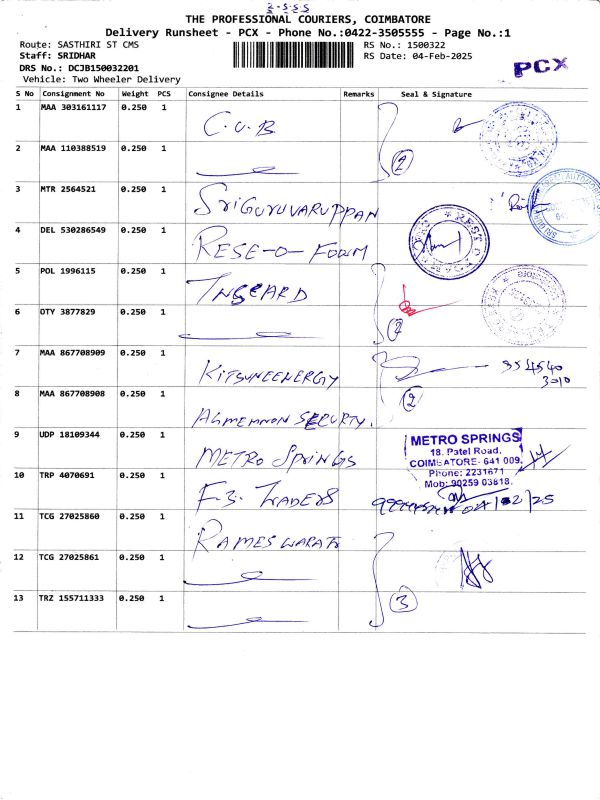 THE PROFESSIONAL COURIERS, COIMBATORE
Delivery Runsheet - PCX - Phone No.:0422-3505555 - Page No.:1
Route: SASTHIRI ST CMS
RS No.: 1500322
Staff: SRIDHAR
RS Date: 04-Feb-2025
DRS No.: DCJB150032201
Vehicle: Two Wheeler Delivery
PCX
S No Consignment No Weight PCS Consignee Details Remarks Seal & Signature
1 MAA 303161117 0.250 1 C.U.B
2 MAA 110388519 0.250 1
(2)
3 MTR 2564521 0.250 1 SriGuruvaruppan
4 DEL 530286549 0.250 1 RESE-O-FOUM
5 POL 1996115 0.250 1 INGEARD
6 OTY 3877829 0.250 1
(2)
7 MAA 867708909 0.250 1 KITSUNEENERGY
354540
3010
8 MAA 867708908 0.250 1 AGMEMNON SECURTY.
(2)
9 UDP 18109344 0.250 1 METRO SPRINGS
METRO SPRINGS
18. Patel Road,
COIMBATORE- 641 009.
Phone: 2231671
Mob: 90259 03818.
10 TRP 4070691 0.250 1 F3. TRADERS
04/02/25
11 TCG 27025860 0.250 1
12 TCG 27025861 0.250 1
13 TRZ 155711333 0.250 1
(3)